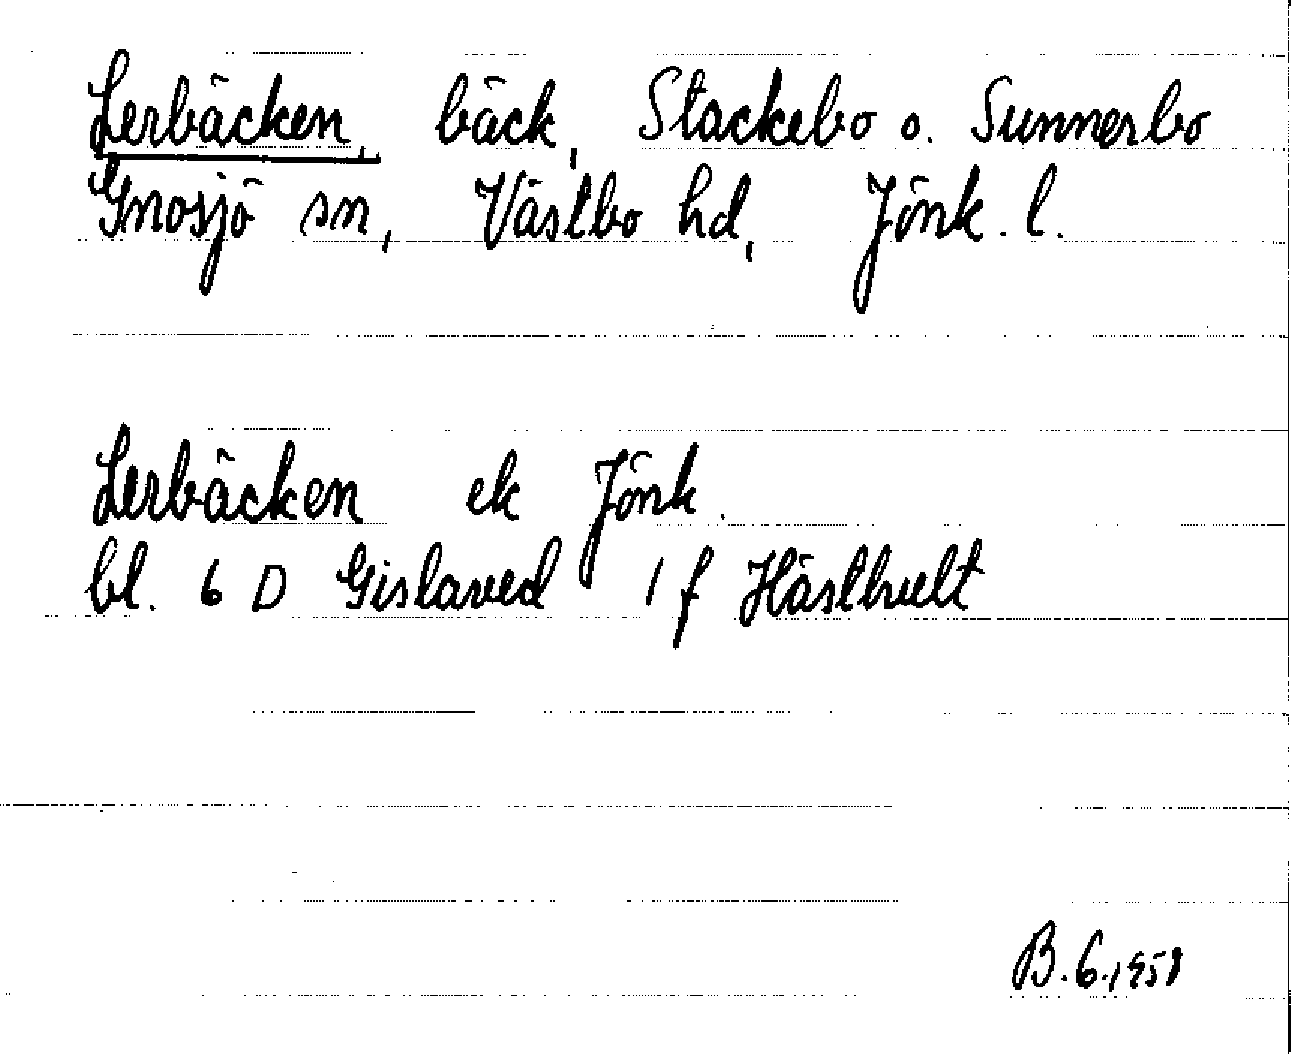 Lerbäcken, bäck, Stackebo o. Sunnerbo
Gnosjö sn, Västbo hd, Jönk. l.
Lerbäcken ek Jönk.
bl. 6 D Gislaved 1 f Hästhult
B.6.1958